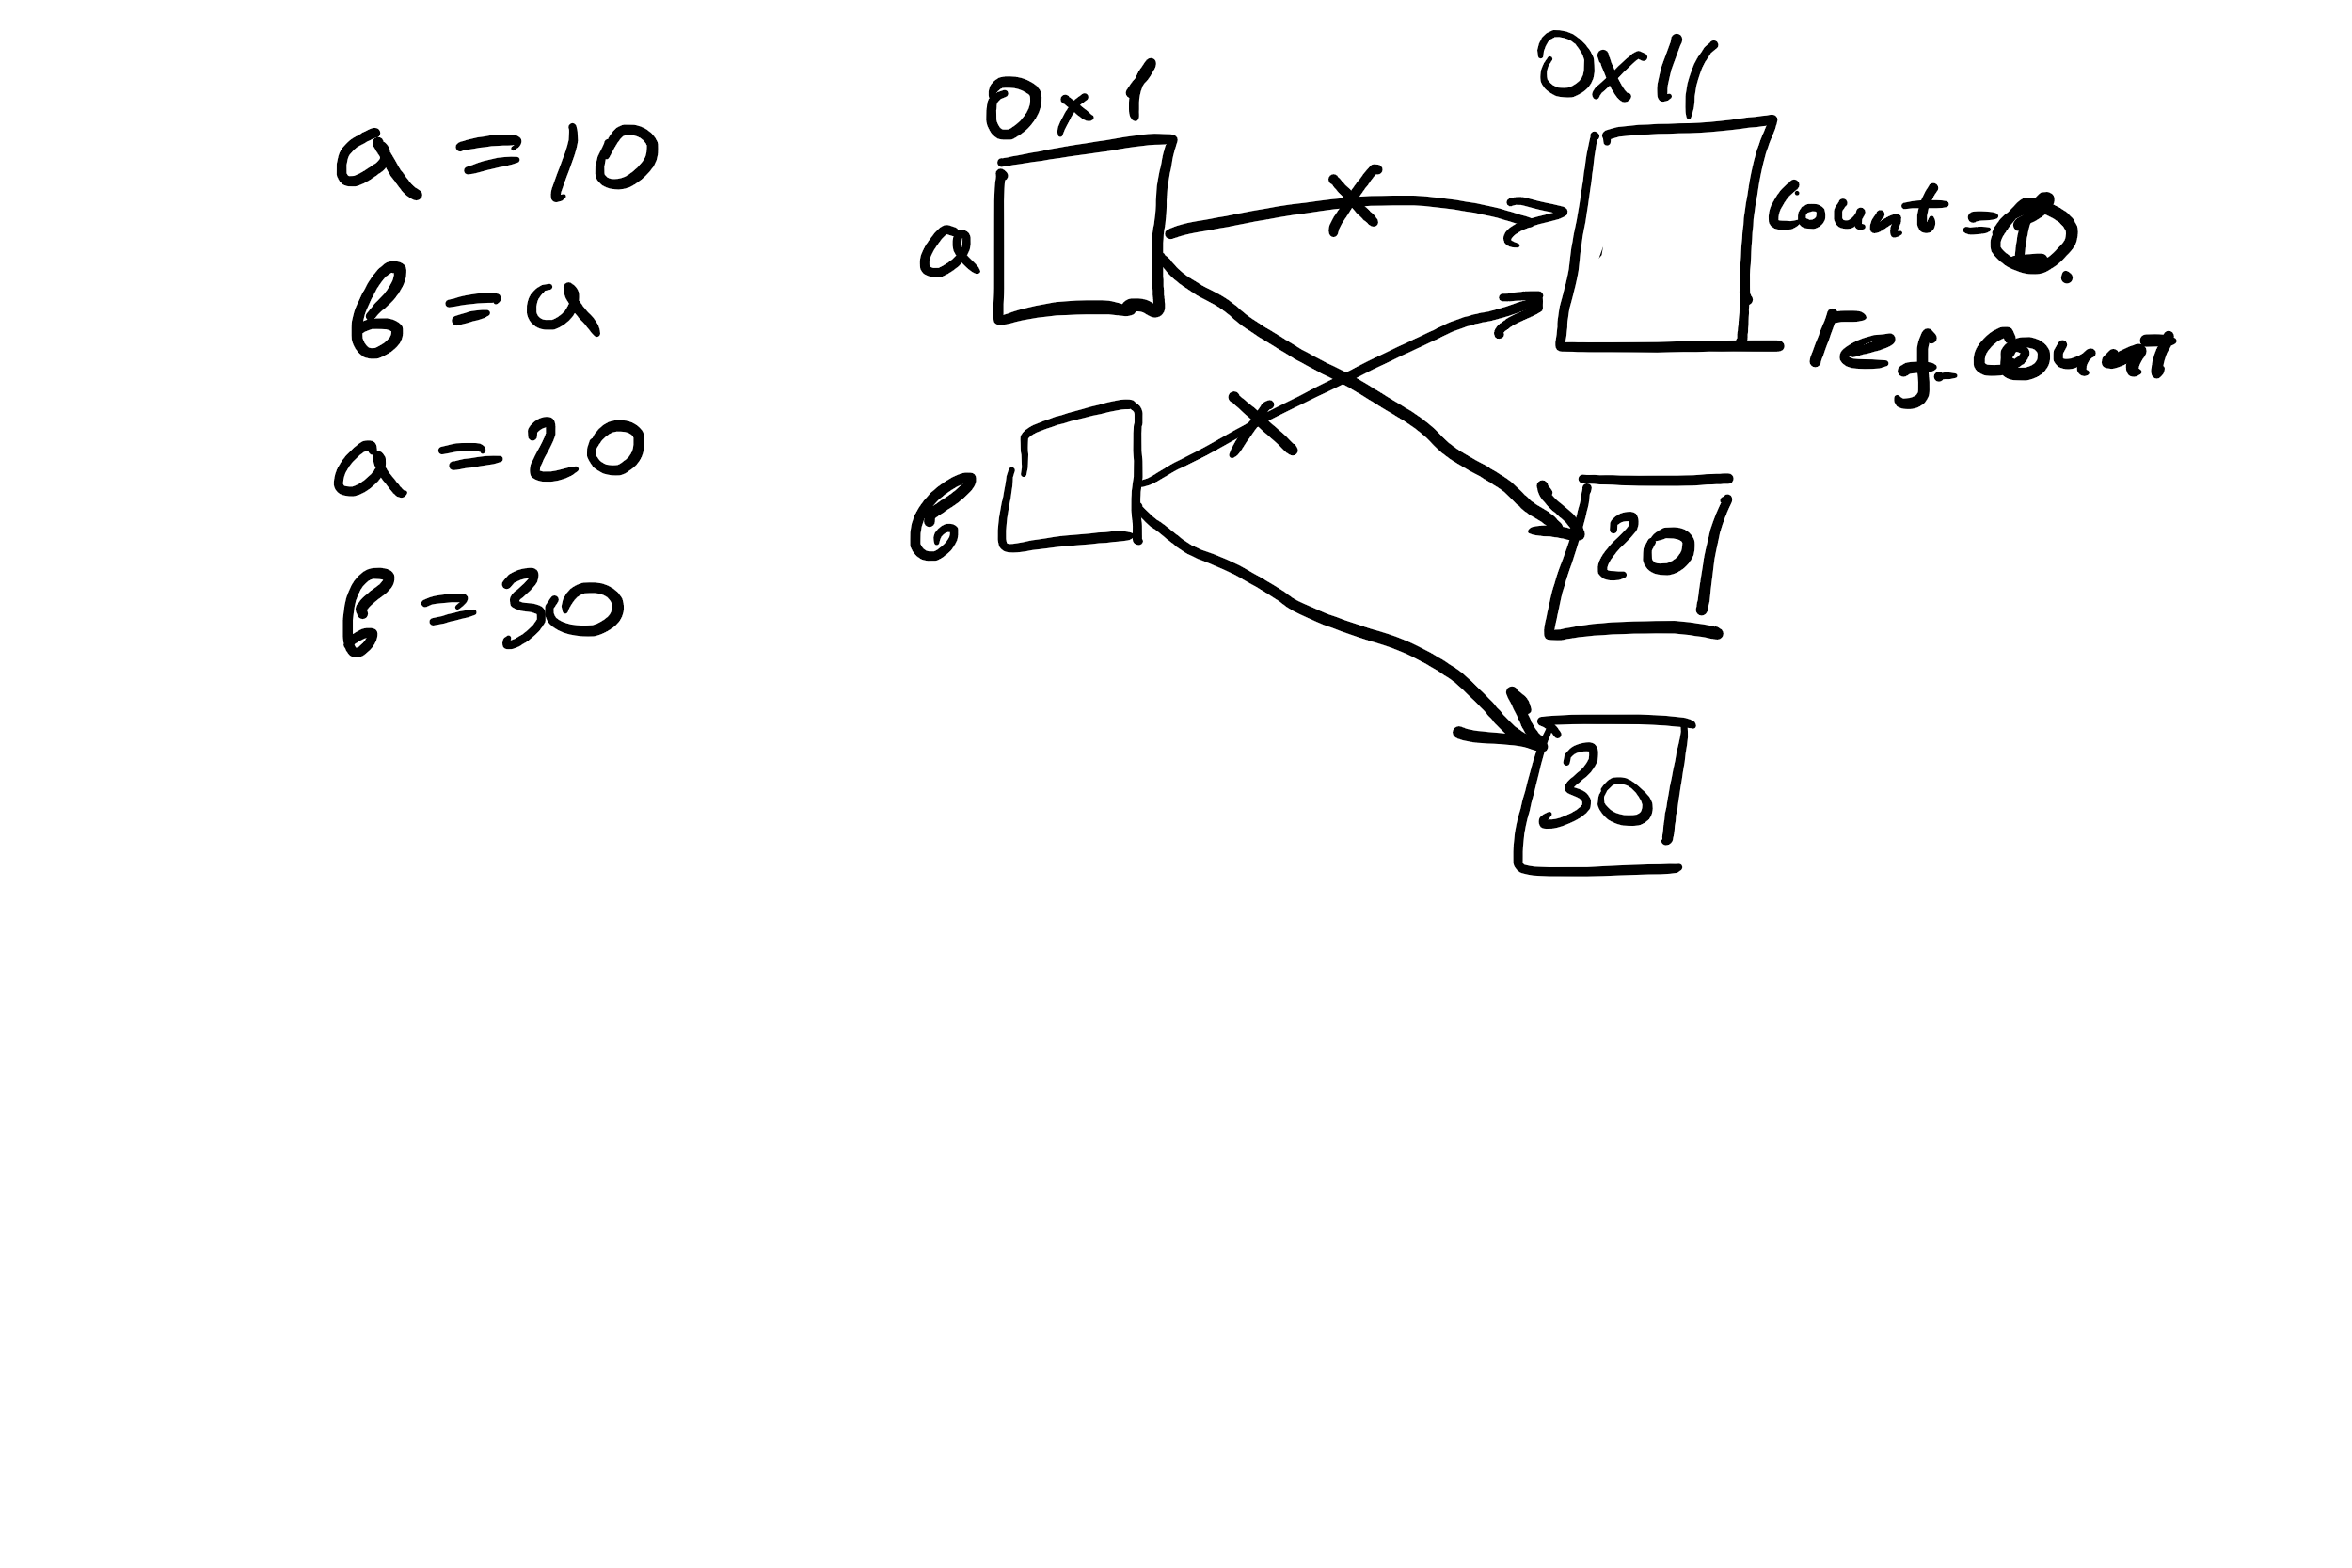 a = 10
b = a
a = 20
b = 30
0x1
a
b
0x11
Count = 0.
ref-count
20
30